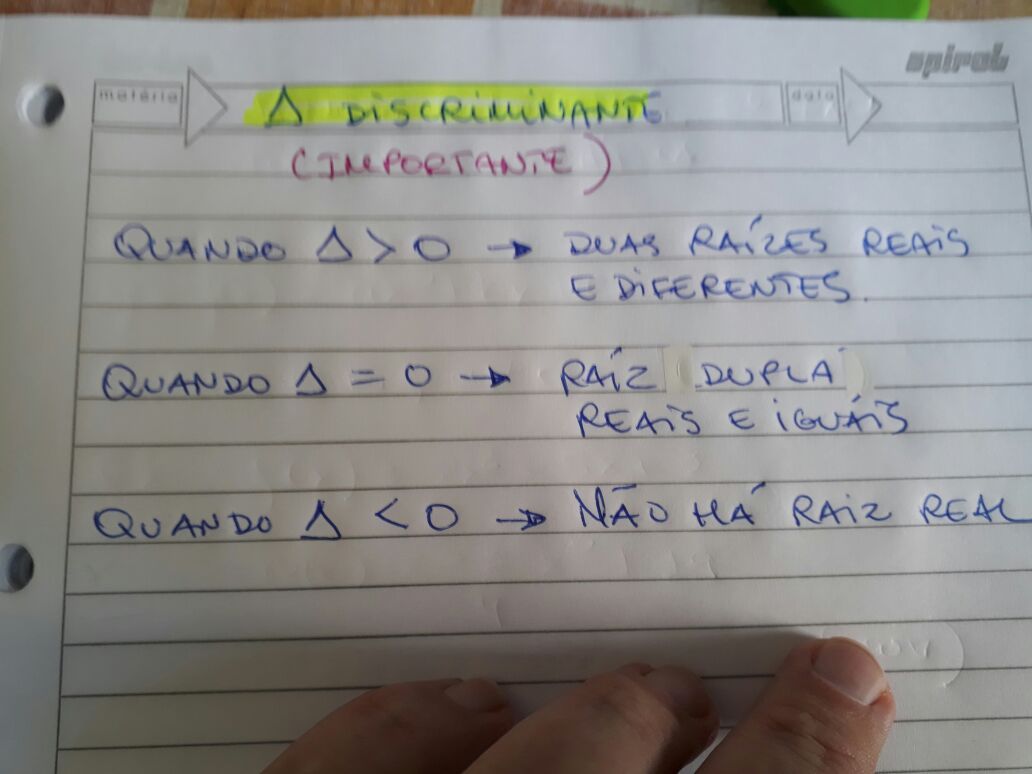 spiral
matéria
data
Δ DISCRIMINANTE
(IMPORTANTE)
QUANDO Δ > 0 → DUAS RAÍZES REAIS
E DIFERENTES.
QUANDO Δ = 0 → RAÍZ DUPLA
REAIS E IGUÁIS
QUANDO Δ < 0 → NÃO HÁ RAIZ REAL